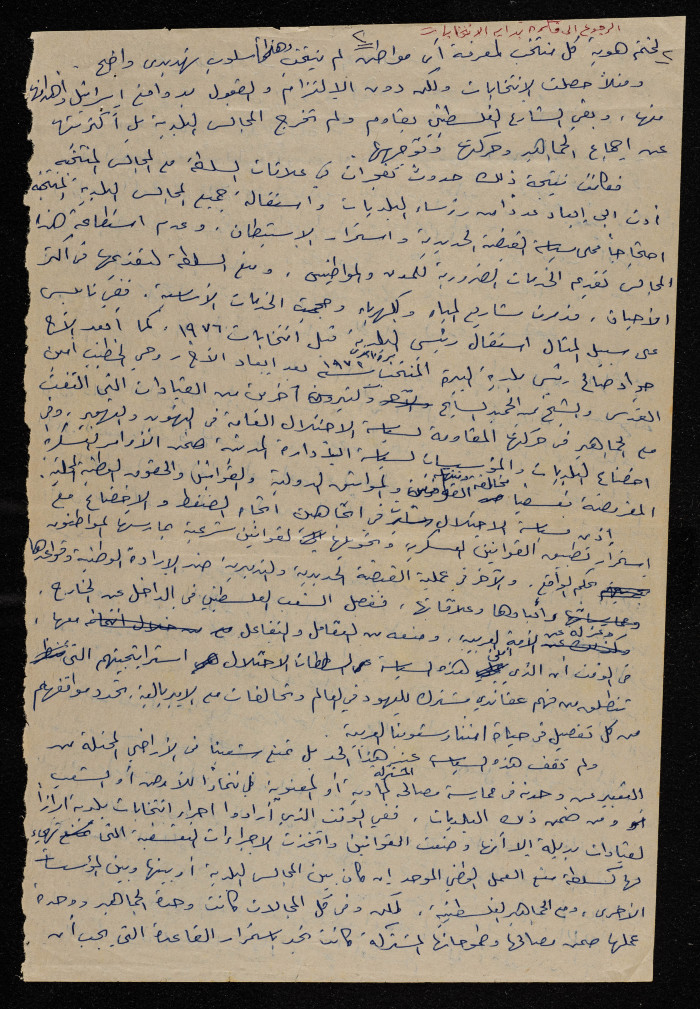 الرجوع الى فكرة بداية الانتخابات
٢
لختم هوية كل منتخب لمعرفة أي مواطن لم ينتخب وهذا أسلوب تهديدي واضح.
ومثلاً حصلت الانتخابات ولكن دون الالتزام والقبول بدوافع اسرائيل وأهدافها
منها، وبقي الشارع الفلسطيني يقاوم ولم تخرج المجالس البلدية بل أكثريتها
عن إجماع الجماهير وحركتها وتوجهها
فكانت نتيجة ذلك حدوث في علاقات السلطة مع المجالس المنتخبة
أدت الى إبعاد عدداً من رؤساء البلديات واستقالة جميع المجالس البلدية المنتخبة
احتجاجاً على سياسة القبضة الحديدية واستمرار الاستيطان، وعدم استطاعة هذا
المجالس تقديم الخدمات الضرورية للمدن والمواطنين، ومنع السلطة لتقديمها في أكثر
الأحيان، مشاريع المياه والكهرباء الخدمات الأساسية. ففي نابلس
على سبيل المثال استقال رئيس البلدية قبل انتخابات ١٩٧٦، كما أبعد الأخ
صالح رئيس بلدية البيرة المنتخب بعد إبعاد الأخ روحي الخطيب أمين
القدس والشيخ عبد الحميد السايح وكثيرون آخرين من القيادات التي التفت
مع الجماهير في حركتها المقاومة لسياسة الاحتلال القائمة في التهويد والتهجير، وفي
اخضاع البلديات والمؤسسات لسياسة الإدارة المدنية ضمن الأوامر العسكرية
المفروضة تعسفياً مخالفة والمواثيق الدولية والقوانين والحقوق الوطنية المحلية.
إذن سياسة الاحتلال في اتجاهين اتجاه الضغط والاخضاع مع
استمرار تطبيق القوانين العسكرية وتحويلها لقوانين شرعية يمارسها المواطنون
بحكم الواقع. والآخر في عملية القبضة الحديدية ضد الإرادة الوطنية وقواعدها
وأبعادها وعلاقاتها، ففصل الشعب الفلسطيني في الداخل عن الخارج،
وعزله عن الأمة العربية، ومنعه من التعامل والتفاعل معها،
في الوقت أن الذي هذه السياسة لسلطات الاحتلال استراتيجيتهم التي
تنطلق من فهم عقائدي مشترك لليهود في العالم وتحالفات مع الامبريالية، تحدد مواقفهم
من كل تفصيل في حياة أمتنا وشعوبنا العربية.
ولم تقف هذه السياسة عند هذا الحد بل تمنع شعبنا في الأراضي المحتلة من
التعبير عن وحدته في ممارسة مصالحه المشتركة المادية أو المعنوية إن للأرض أو الشعب
ومن ضمن ذلك البلديات، ففي الوقت الذي أرادوا اجراء انتخابات بلدية
لقيادات بديلة إلا أنها وضعت القوانين واتخذت الاجراءات التعسفية التي
لها كسلطة منع العمل الوطني الموحد إن كان بين المجالس البلدية أو بينها وبين المؤسسات
الأخرى، ومع الجماهير الفلسطينية. لكن وفي كل المجالات كانت وحدة الجماهير ووحدة
عملها ضمن مصالحها وطموحاتها المشتركة كانت باستمرار القاعدة التي يجب أن